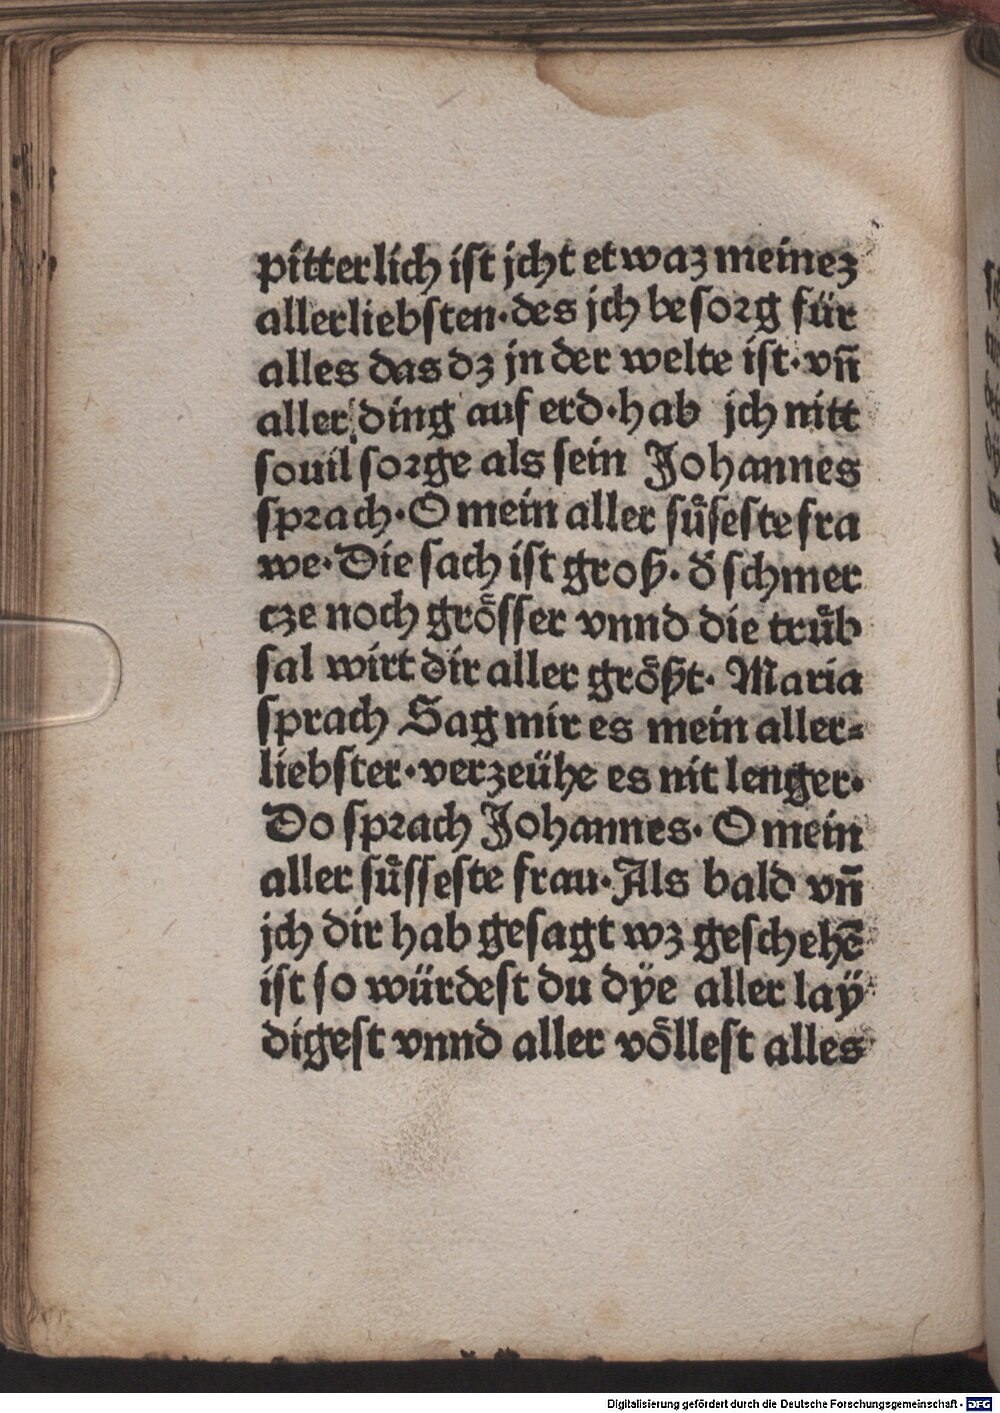 pitterlich ist jcht etwaz meinez
allerliebsten·des jch besorg für
alles das dz jn der welte ist·vn̄
aller ding auf erd·hab jch nitt
souil sorge als sein Johannes
sprach·O mein aller sůͤseste fra
we·Die sach ist groß·d̕ schmer
cze noch gröſſer vnnd die trůͤb
sal wirt dir aller größt·Maria
sprach Sag mir es mein aller⸗
liebster·verzeühe es nit lenger·
Do sprach Johannes·O mein
aller sůͤsseste frau·Als bald vn̄
jch dir hab gesagt wz gescheh̄e
ist so würdest du dÿe aller laÿ
digest vnnd aller völlest alles
Digitalisierung gefördert durch die Deutsche Forschungsgemeinschaft · DFG